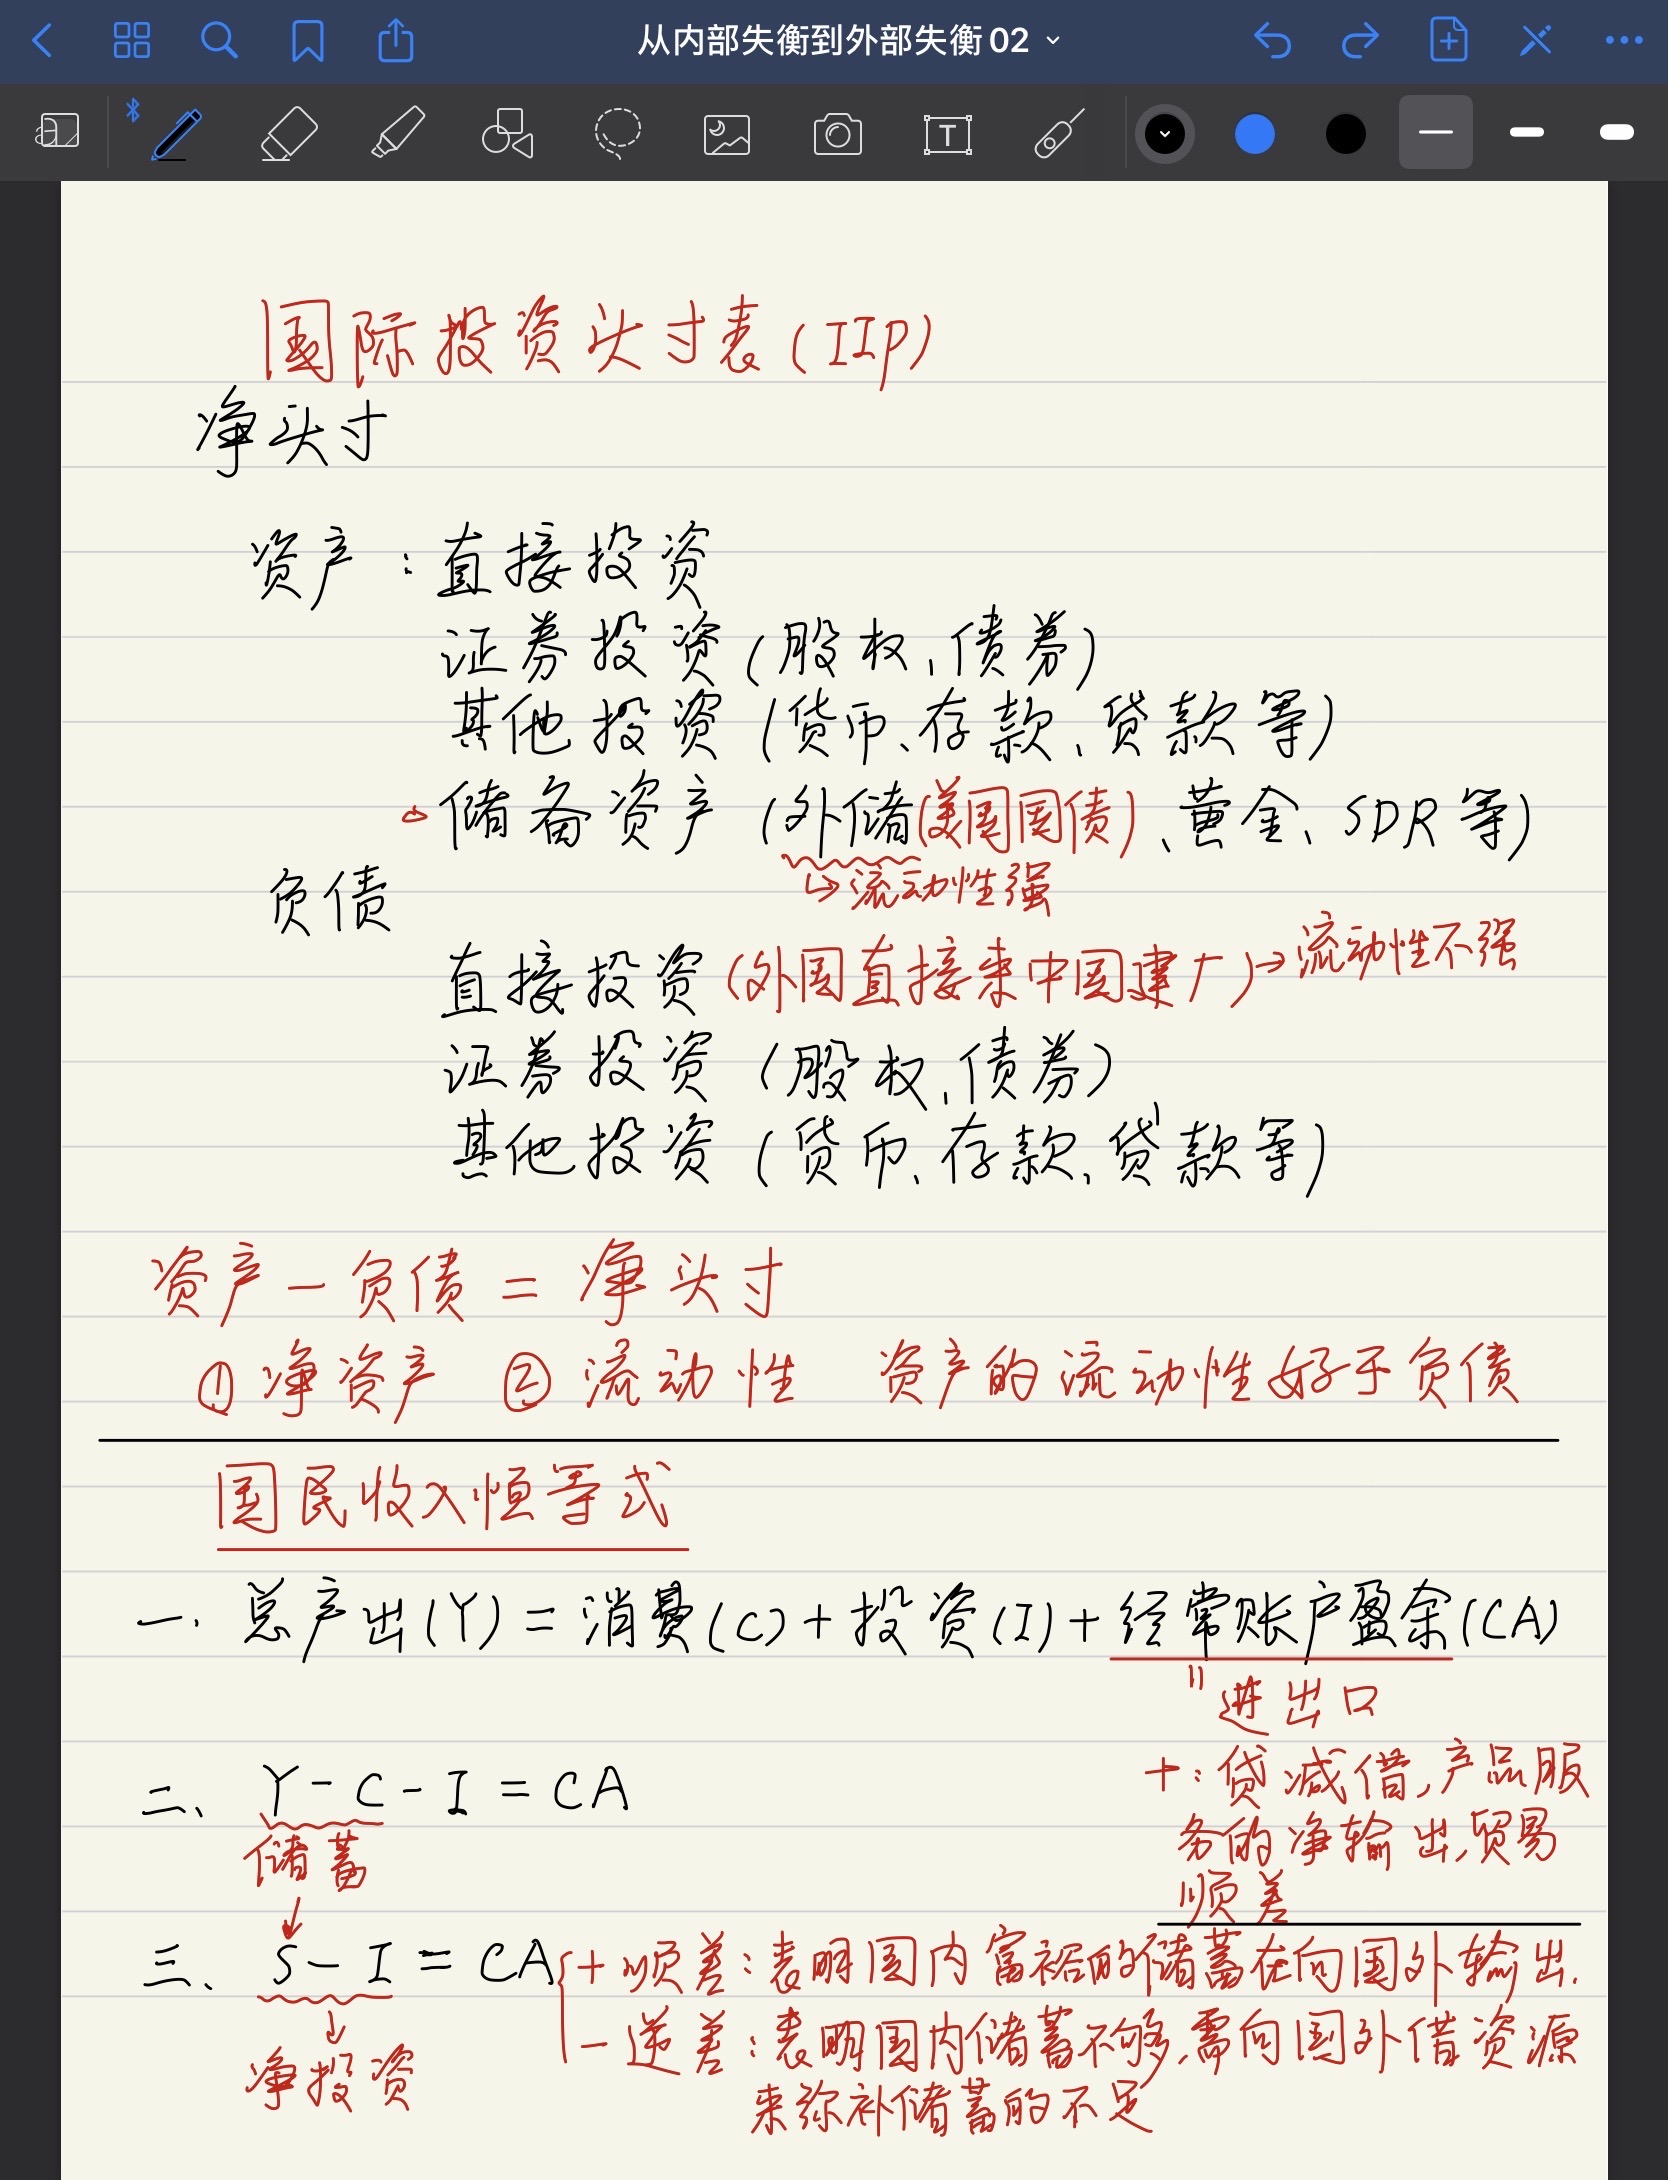 从内部失衡到外部失衡02
T
国际投资头寸表(IIP)
净头寸
资产:直接投资
证券投资(股权、债券)
其他投资(货币、存款、贷款等)
储备资产(外储(美国国债)、黄金、SDR等)
↳流动性强
负债
直接投资(外国直接来中国建厂)→流动性不强
证券投资(股权、债券)
其他投资(货币、存款、贷款等)
资产-负债=净头寸
①净资产 ②流动性 资产的流动性好于负债
国民收入恒等式
一.总产出(Y)=消费(C)+投资(I)+经常账户盈余(CA)
"进出口
+:贷减借,产品服
务的净输出,贸易
顺差
二、Y-C-I=CA
储蓄
↓
三、S-I=CA{+顺差:表明国内富裕的储蓄在向国外输出.
-逆差:表明国内储蓄不够,需向国外借资源
来弥补储蓄的不足
↓
净投资